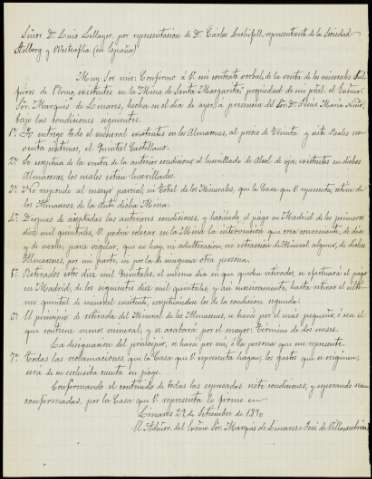 Señor Dn. Luis Lullayer, por representación de Dn. Carlos representante de la Sociedad
Stolberg y Westfalia (en España)
Muy Sor. mio: Confirmo á V. mi contrato verbal, de la venta de los minerales
de Plomo, existentes en la Mina de Santa Margarita propiedad de mi pral. el Excmo.
Sor. Marqués de Linares, hecha en el dia de ayer, á presencia del Sor. Dn. Jose Maria
bajo las condiciones siguientes.
1ª. Le entrego todo el mineral existente en los Almacenes, al precio de Veinte y siete Reales
centimos, el Quintal Castellano.
2ª. Se exceptua de la venta de la anterior condicion el barnillado de Alcol de oja, existente en dichos
Almacenes, los cuales están
3ª. No respondo al ensayo parcial ni total de los Minerales, que la Casa que V. representa, retire de
los Almacenes de la dicha Mina.
4ª. Despues de aceptadas las anteriores condiciones, y haciendo el pago en Madrid de los primeros
diez mil quintales, V. podrá colocar en la Mina la intervencion que crea conveniente, de dia
y de noche, para vigilar, que no haya ni adulteracion ni estraccion de Mineral alguno, de dichos
Almacenes, por mi parte, ni por la de ninguna otra persona.
5ª. Retirados estos diez mil Quintales, el mismo dia en que queden retirados, se efectuará el pago
en Madrid, de los siguientes diez mil quintales, y asi sucesivamente, hasta retirar el ultimo
quintal de mineral existente, exceptuandose los de la condicion segunda.
6ª. El principio de retirada del Mineral de los Almacenes, se hará por el mas pequeño, ó sea el
que contiene menos mineral, y se acabará por el mayor. Término de dos meses.
La designacion del principio, se hará por mi, ó la persona que me represente.
7ª. Todas las reclamaciones que la Casa que V. representa hagan, los gastos que se originen,
será de su esclusiva cuenta su pago.
Conformando el contenido de todas las espresadas siete condiciones, y esperando sean
conformadas, por la Casa que V. representa lo firmo en
Linares 29 de Setiembre de 1890
El Admor. del Excmo Sor. Marqués de Linares = José de Villanueva